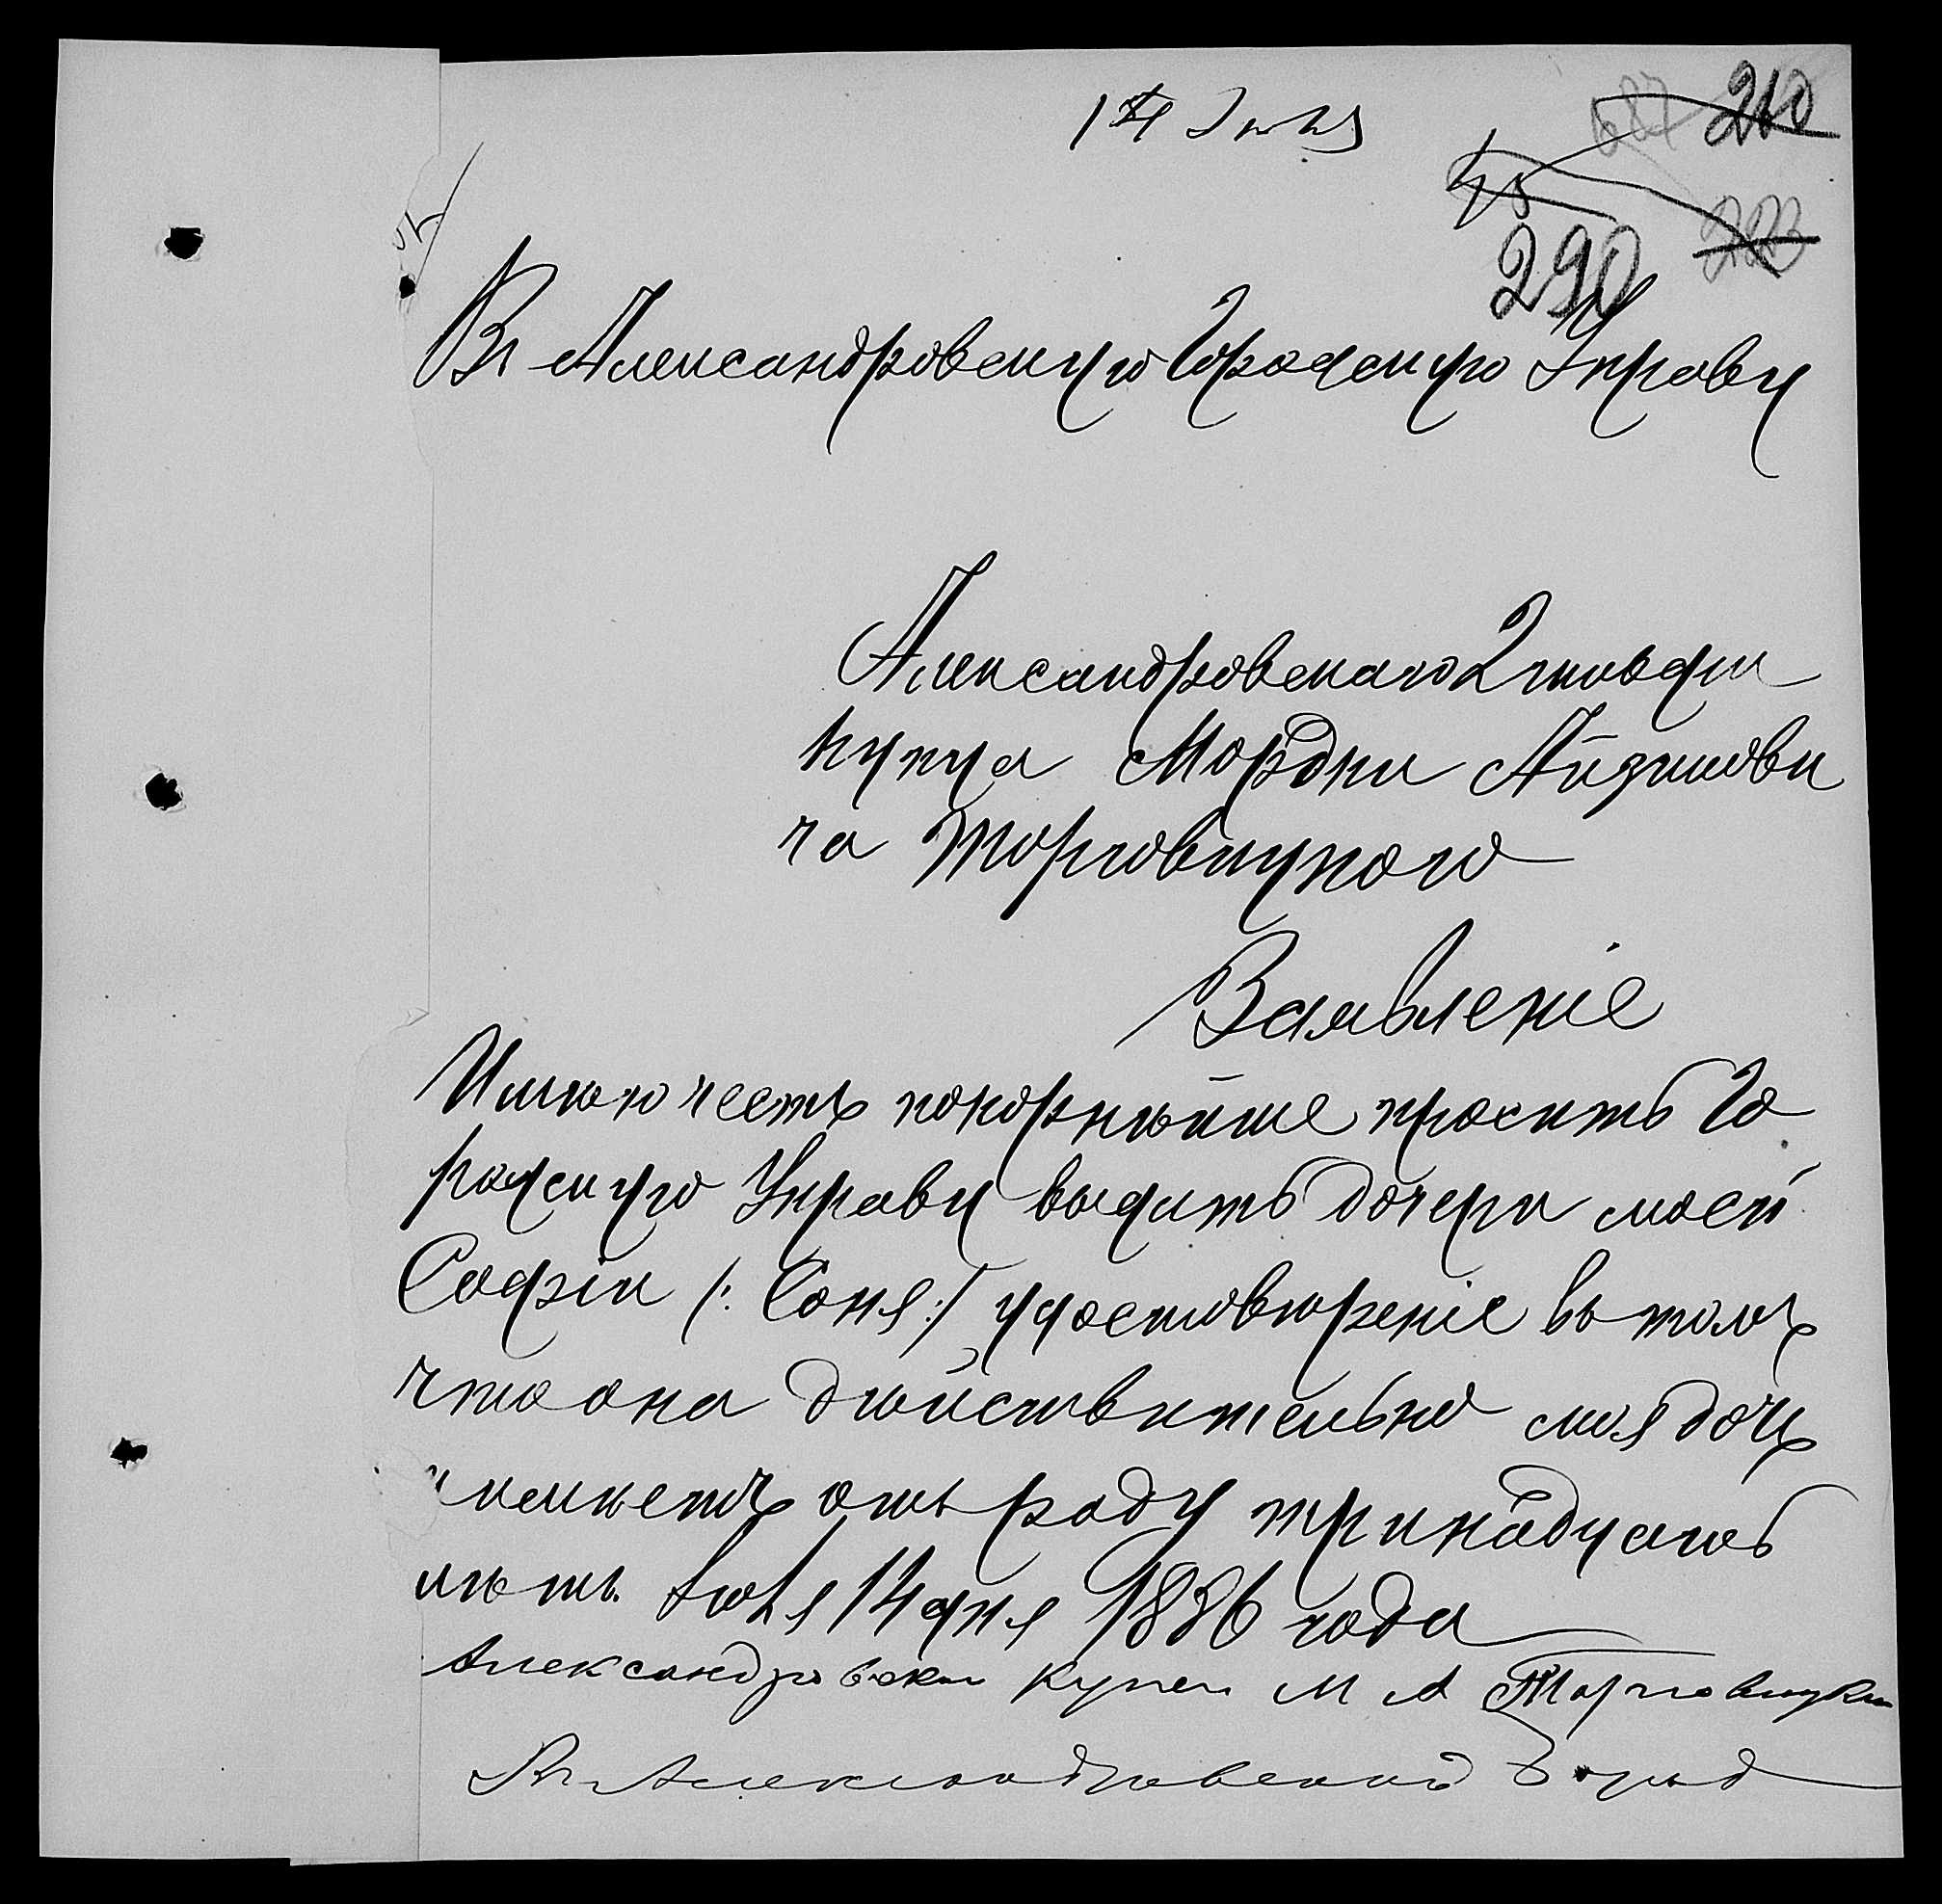 14 Іюля
210
687
45
223
290
Въ Александровскую Городскую Управу
Александровскаго 2 гильдіи
купца Мордки Айзикови
ча Торговицкаго
Заявленіе
Имѣю честь покорнѣйше просить Го
родскую Управу выдать дочери моей
Софіи /: Соня :/ удостовѣреніе въ томъ
что она дѣйствительно моя дочь
и имѣетъ отъ роду тринадцать
лѣтъ. Іюля 14 дня 1886 года
Александровски купец М А Торговицки